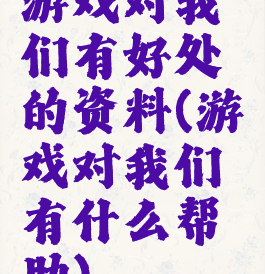 游戏对我
们有好处
的资料(游
戏对我们
有什么帮
助)